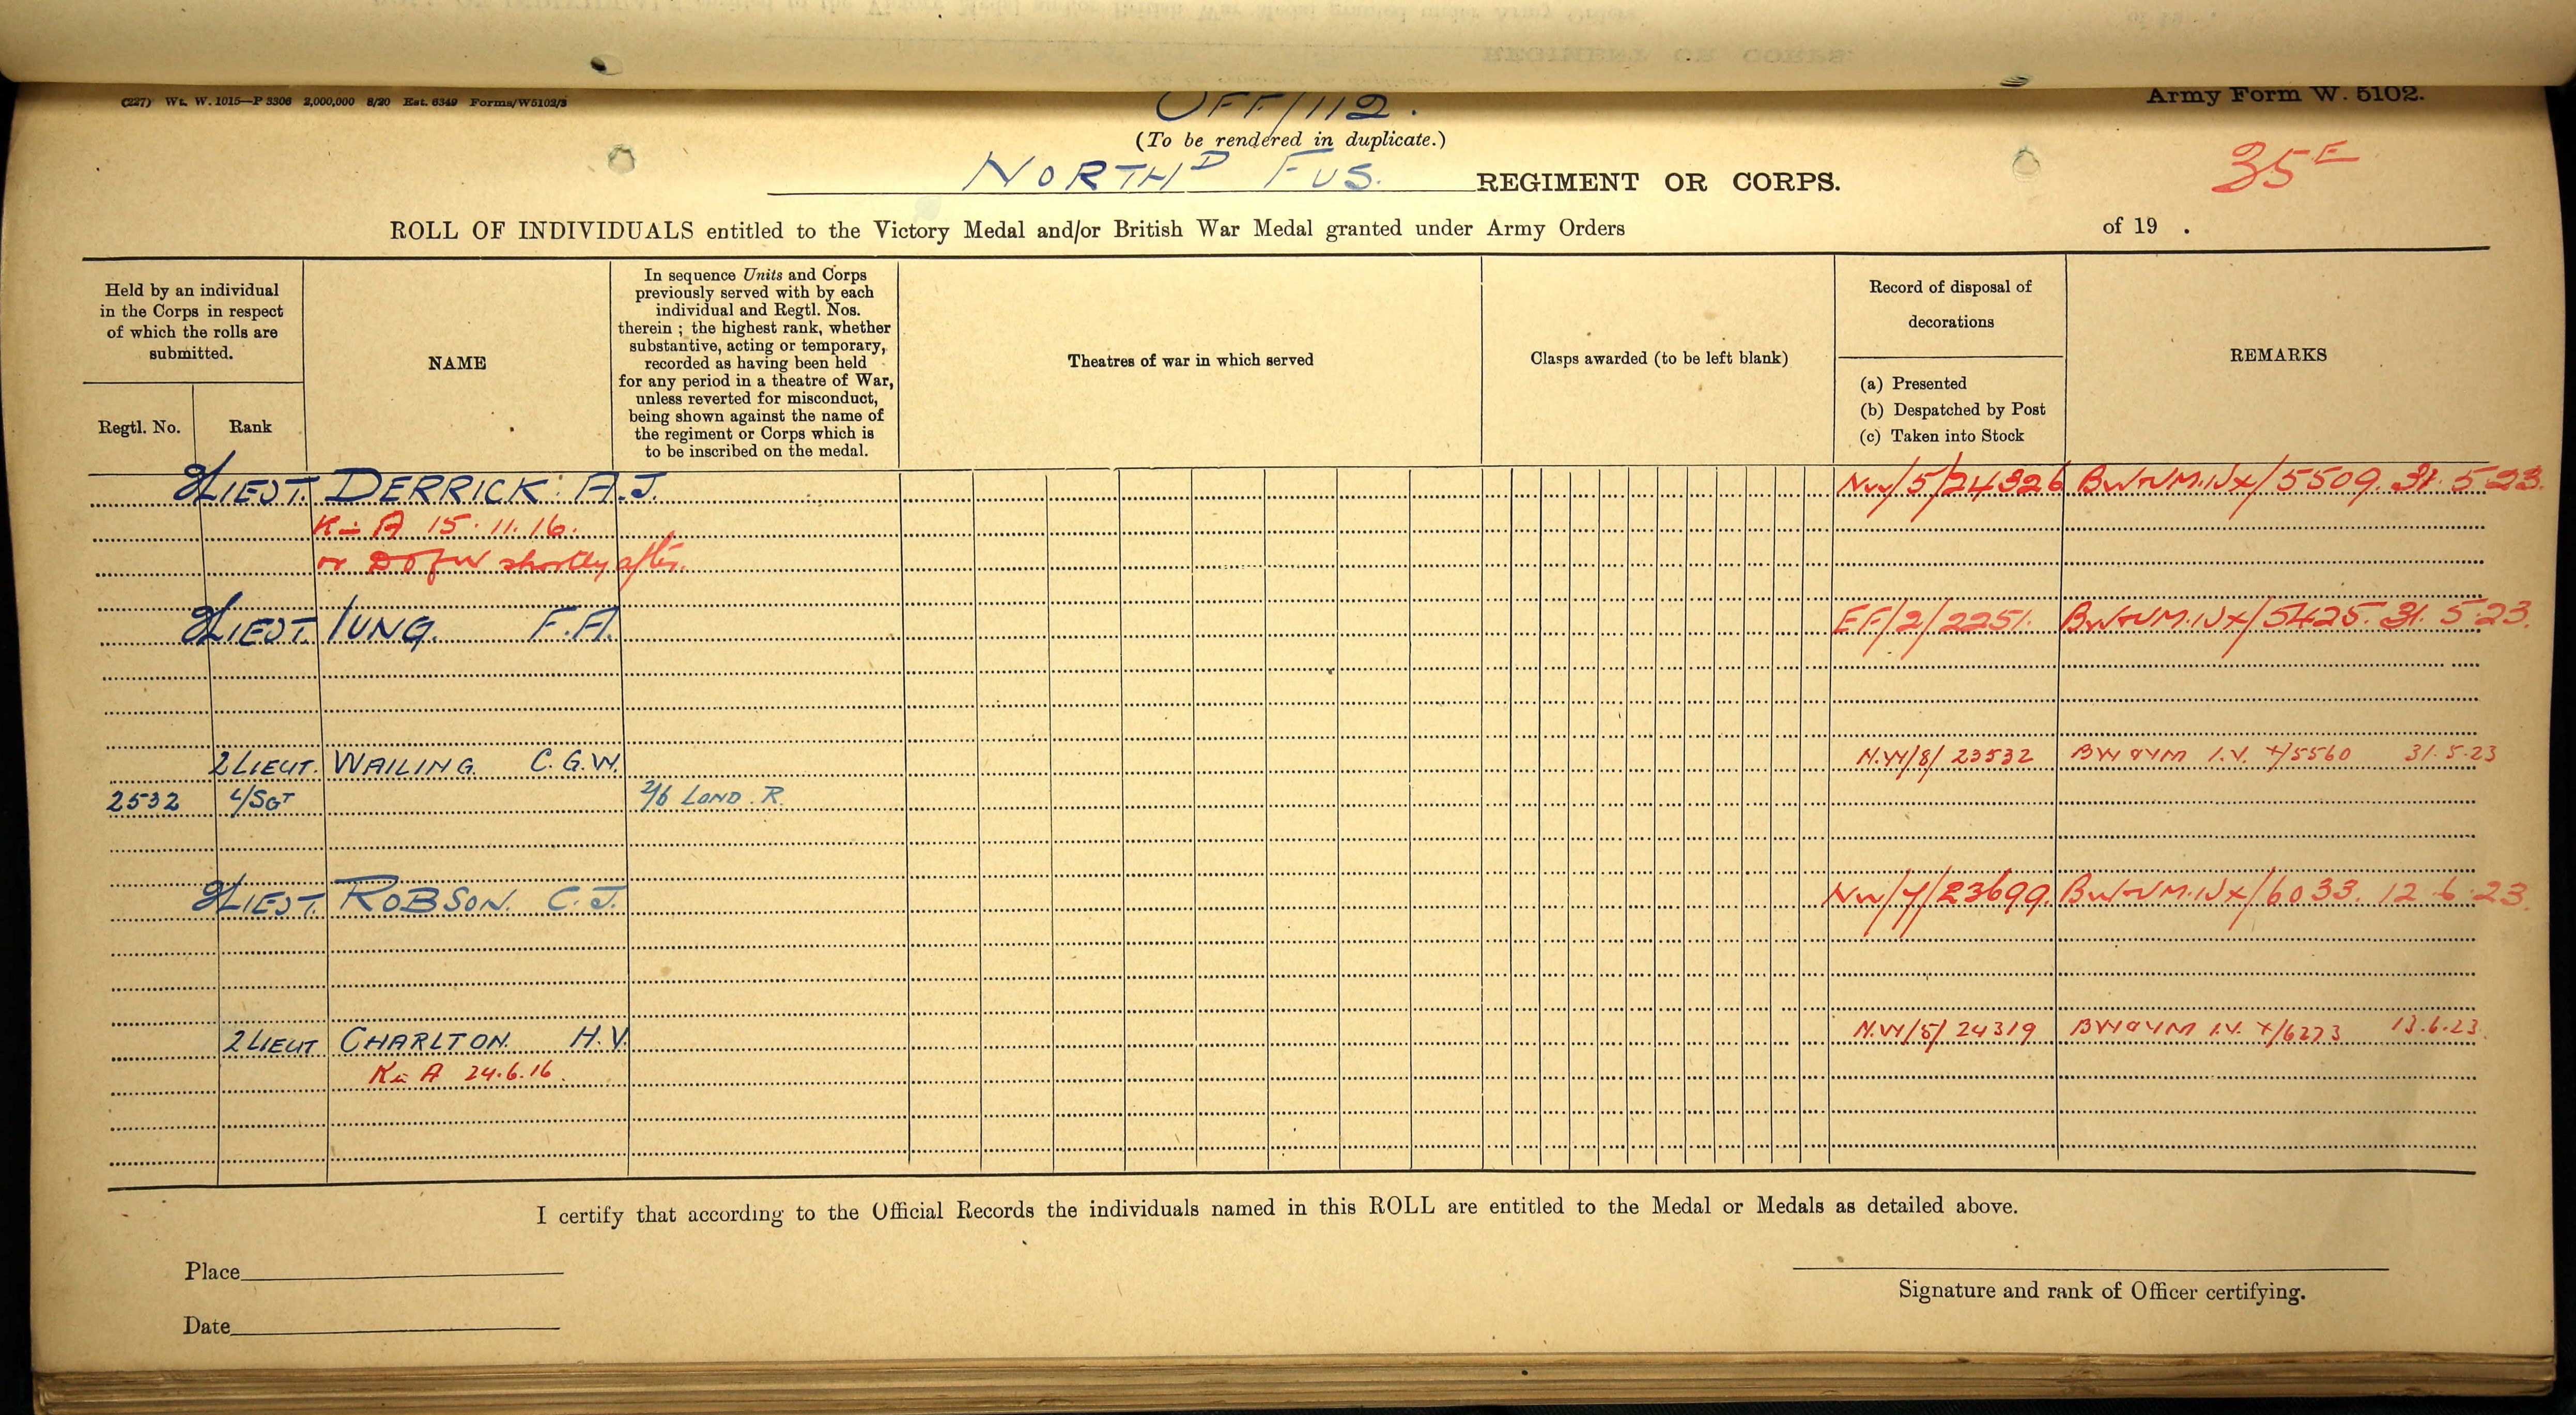 (227) Wt. W. 1015—P 3306 2,000,000 8/20 Est. 6349 Forms/W5102/3
OFF/112.
Army Form W. 5102.
(To be rendered in duplicate.)
35E
NORTHD FUS. REGIMENT OR CORPS.
ROLL OF INDIVIDUALS entitled to the Victory Medal and/or British War Medal granted under Army Orders of 19 .
Held by an individual
in the Corps in respect
of which the rolls are
submitted.
Regtl. No.
Rank
NAME
In sequence Units and Corps
previously served with by each
individual and Regtl. Nos.
therein ; the highest rank, whether
substantive, acting or temporary,
recorded as having been held
for any period in a theatre of War,
unless reverted for misconduct,
being shown against the name of
the regiment or Corps which is
to be inscribed on the medal.
Theatres of war in which served
Clasps awarded (to be left blank)
Record of disposal of
decorations
(a) Presented
(b) Despatched by Post
(c) Taken into Stock
REMARKS
2LIEUT. DERRICK. A.J. NW/5/24326 BW&VM.IVX/5509. 31.5.23.
K in A 15.11.16.
or D of W shortly after.
2LIEUT. IUNG. F.A. EF/2/2251. BW&VM.IVX/5425. 31.5.23.
2LIEUT. WAILING. C.G.W. N.W/8/23532 BW&VM I.V. X/5560 31.5.23
2532 L/SGT 2/6 LOND. R.
2LIEUT. ROBSON. C.J. NW/7/23699. BW&VM.IVX/6033. 12.6.23.
2LIEUT CHARLTON. H.V. N.W/5/24319 BW&VM I.V. X/6273 13.6.23
K in A 24.6.16.
I certify that according to the Official Records the individuals named in this ROLL are entitled to the Medal or Medals as detailed above.
Place
Signature and rank of Officer certifying.
Date